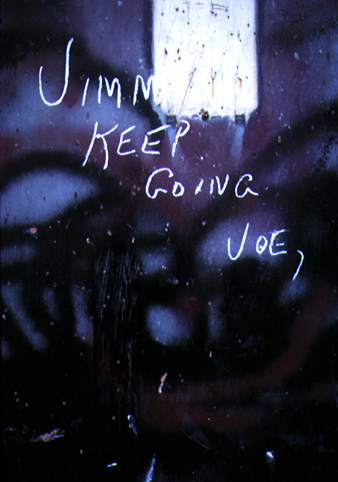 JIMM
KEEP
GOING
JOE,